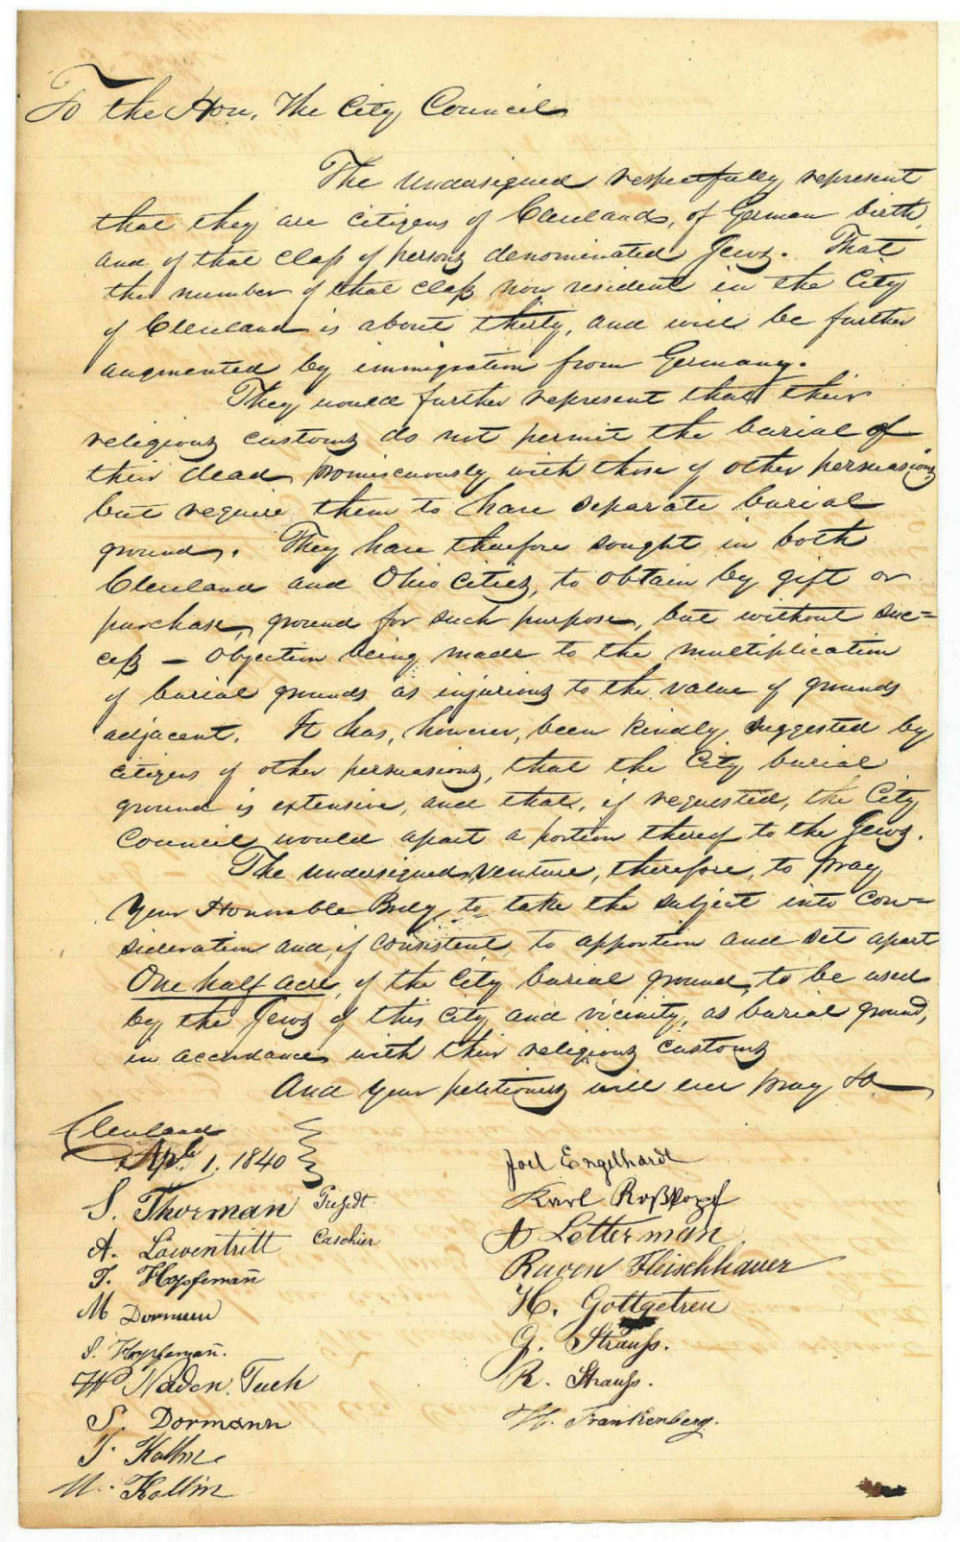 To the Hon. The City Council
The undersigned respectfully represent
that they are citizens of Cleveland, of German birth,
and of that claſs of persons denominated Jews. That
the number of that claſs now resident in the City
of Cleveland is about thirty, and will be further
augmented by immigration from Germany.
They would further represent that their
religious customs do not permit the burial of
their dead promiscuously with those of other persuasions
but require them to have separate burial
ground. They have therefore sought in both
Cleveland and Ohio Cities, to obtain by gift or
purchase, ground for such purpose, but without suc=
ceſs – objection being made to the multiplication
of burial grounds as injurious to the value of grounds
adjacent. It has, however, been kindly suggested by
citizens of other persuasions, that the City burial
ground is extensive, and that, if requested, the City
Council would apart a portion thereof to the Jews.
The undersigned, venture, therefore, to pray
Your Honorable Body, to take the subject into con=
sideration and, if consistent, to apportion and set apart
One half acre, of the City burial ground, to be used
by the Jews of this City and vicinity, as burial ground,
in accordance with their religious customs
And your petitioners will ever pray &c
Cleveland
Apl. 1. 1840
S. Thorman Presidt
A. Löwentritt Caschier
T. Hopfemañ
M Dormenn
S. Hopfemañ.
W Naden. Tuch
S. Dormann
T. Kollm
M. Kollm
Joel Engelhardt
Karl Roßkopf
A Letterman
Ruven Fleischhauer
H. Gottgetreu
G. Strauſs.
R. Strauſs.
H. Frankenberg.